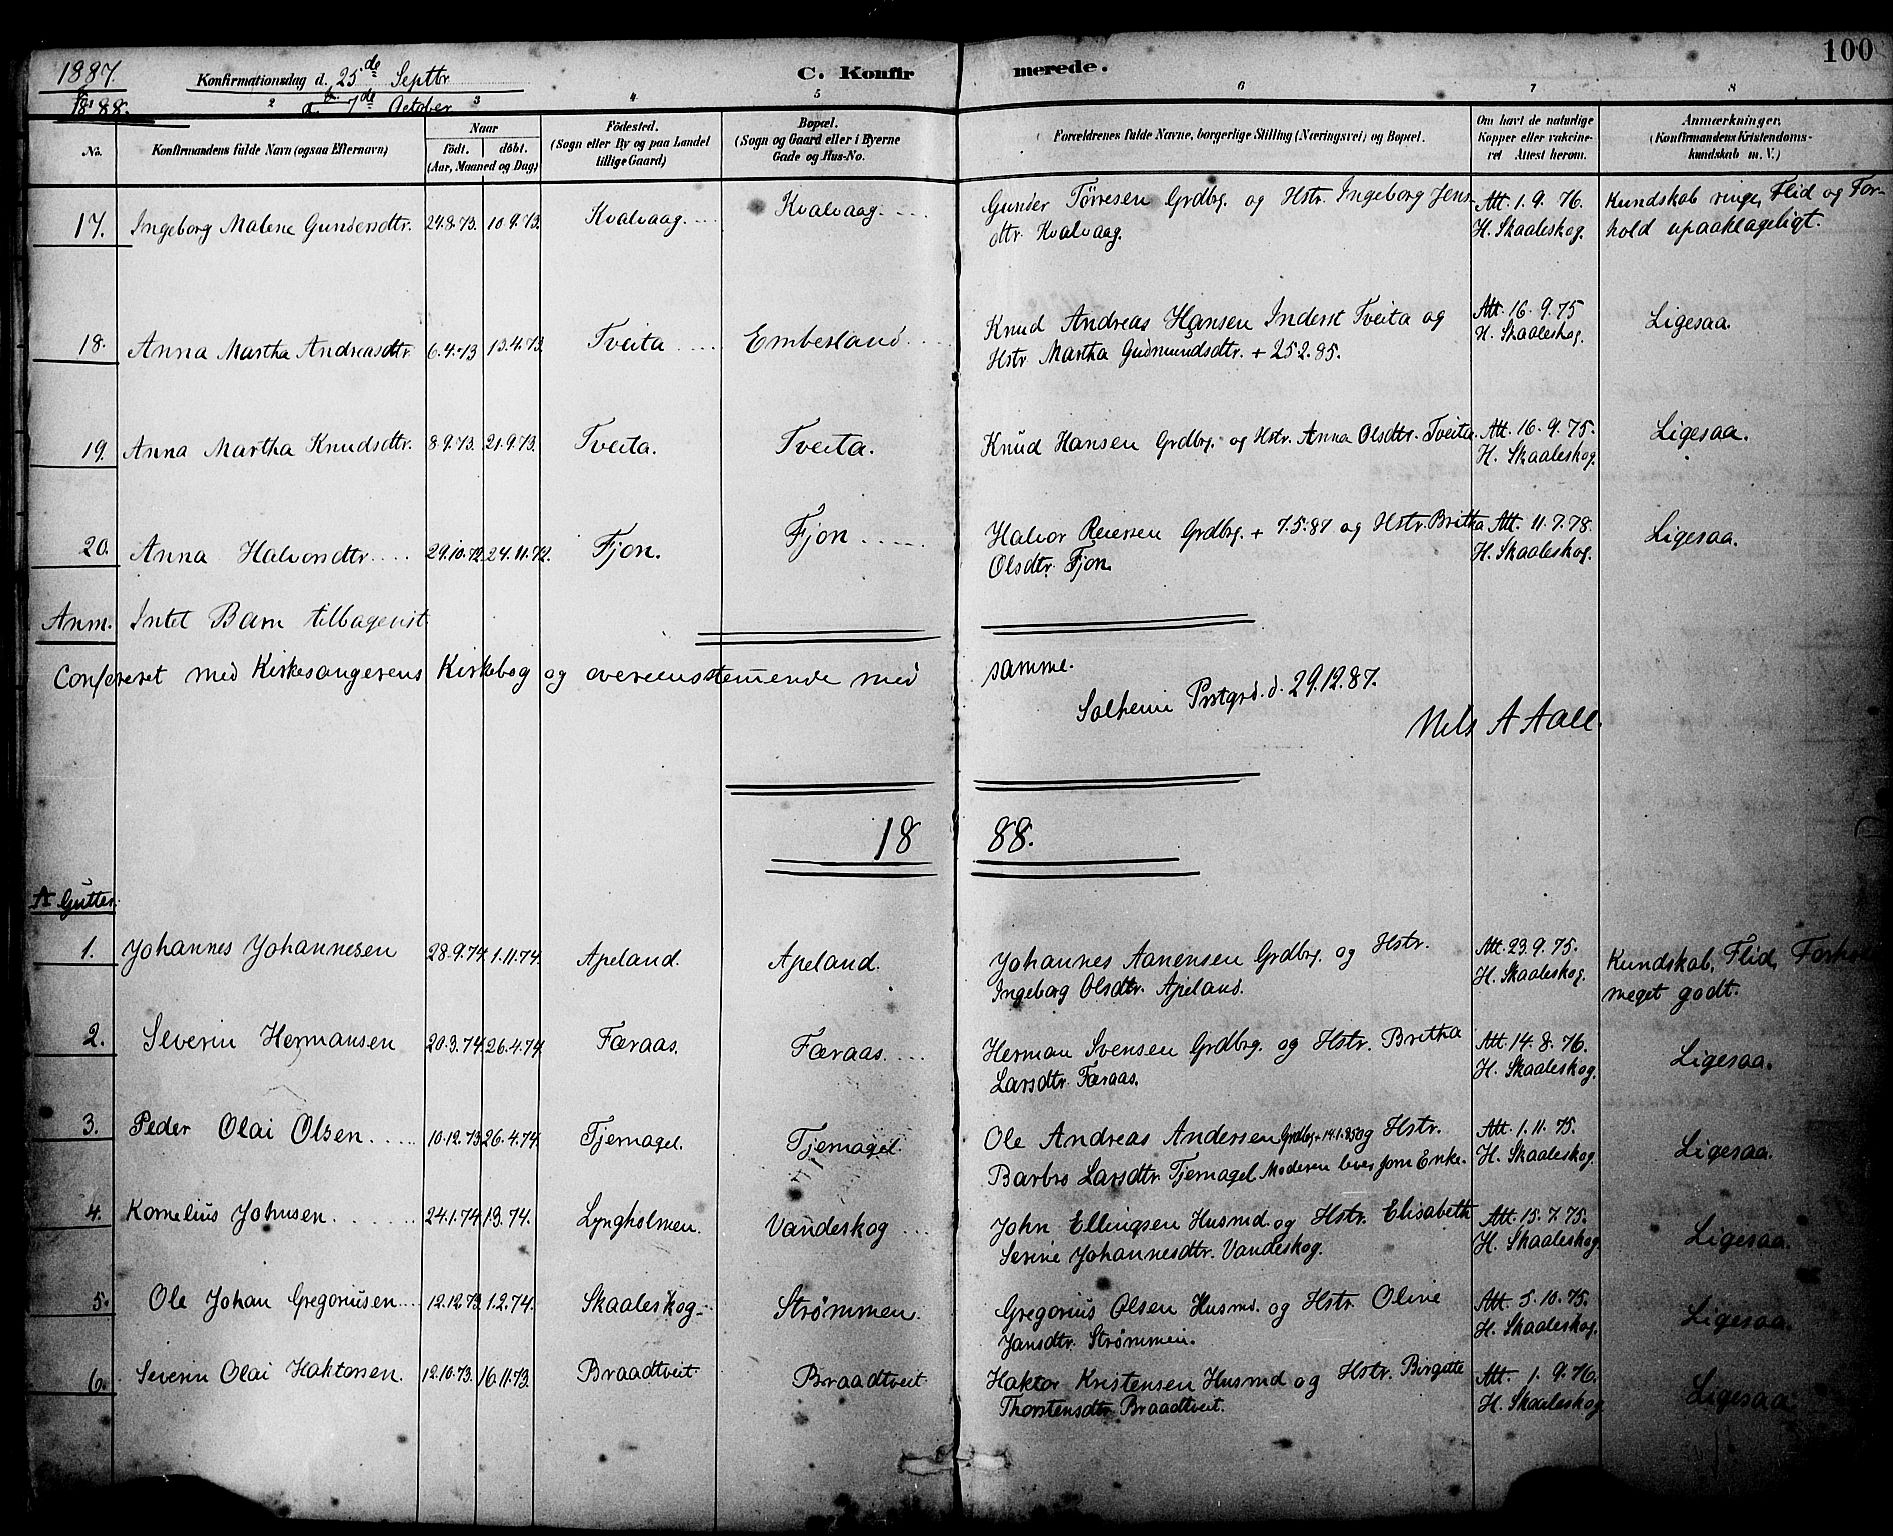 1887. Konfirmationsdag d. 25de Septbr C. Konfirmerede. 100
1888. d. 7de October
2 3 4 5 6 7 8
No. Konfirmandens fulde Navn (ogsaa Efternavn) Naar födt. döbt. (Aar, Maaned og Dag) Födested. (Sogn eller By og paa Landet tillige Gaard) Bopæl. (Sogn og Gaard eller i Byerne Gade og Hus-No. Forældrenes fulde Navne, borgerlige Stilling (Næringsvei) og Bopæl. Om havt de naturlige Kopper eller vakcineret Attest herom. Anmærkninger, (Konfirmandens Kristendomskundskab m. V.)
17. Ingeborg Malene Gundersdtr. 24.8.73. 10.9.73. Kvalvaag. Kvalvaag. Gunder Tørresen Grdbrg. og Hstr. Ingeborg Jens- Att. 1.9.76. Kundskab ringe, Flid og For-
dtr. Kvalvaag. H. Skaaleskog. hold upaaklageligt.
18. Anna Martha Andreasdtr. 6.4.73 13.4.73. Tveita Emberland Knud Andreas Hansen Inderst Tveita og Att. 16.9.75 Ligesaa.
Hstr. Martha Gudmundsdtr. + 25.2.85. H. Skaaleskog.
19. Anna Martha Knudsdtr. 8.9.73. 21.9.73. Tveita. Tveita. Knud Hansen Grdbrg. og Hstr. Anna Olsdtr. Tveita. Att. 16.9.75. Ligesaa.
H. Skaaleskog.
20. Anna Halvorsdtr. 29.10.72. 24.11.72. Fjon. Fjon Halvor Reiersen Grdbrg. + 7.5.87 og Hstr. Britha Att. 11.7.78. Ligesaa.
Olsdtr. Fjon. H. Skaaleskog.
Anm. Intet Barn tilbagevist
Confereret med Kirkesangerens Kirkebog og overeensstemmende med samme.
Solheim Prstgrd. d. 29.12.87.
Nils A Aall.
1888.
A Gutter.
1. Johannes Johannesen 28.9.74. 1.11.74. Apeland. Apeland. Johannes Aanensen Grdbrg. og Hstr. Att. 23.9.75. Kundskab, Flid,
Ingeborg Olsdtr. Apeland. H. Skaaleskog. meget godt.
2. Severin Hermansen 20.3.74. 26.4.74. Færaas. Færaas. Herman Svensen Grdbrg. og Hstr. Britha Att. 14.8.76. Ligesaa.
Larsdtr. Færaas. H. Skaaleskog.
3. Peder Olai Olsen 10.12.73. 26.4.74. Tjernagel. Tjernagel. Ole Andreas Andersen Grdbrg. + 14.1.85 og Hstr. Att. 1.11.75. Ligesaa.
Barbro Larsdtr. Tjernagel. Moderen lever som Enke. H. Skaaleskog.
4. Kornelius Johnsen 24.1.74. 1.3.74. Lyngholmen. Vandeskog John Ellingsen Husmd. og Hstr. Elisabeth Att. 15.7.75. Ligesaa.
Serine Johannesdtr. Vandeskog. H. Skaaleskog.
5. Ole Johan Gregoriusen 12.12.73. 1.2.74. Skaaleskog Strømmen. Gregorius Olsen Husmd. og Hstr. Oline Att. 5.10.75. Ligesaa.
Jansdtr. Strømmen. H. Skaaleskog.
6. Severin Olai Haktorsen. 12.10.73. 16.11.73. Braadtveit Braadtveit Haktor Kristensen Husmd og Hstr. Birgitte Att. 1.9.76. Ligesaa.
Thorstensdtr. Braadtveit. H. Skaaleskog